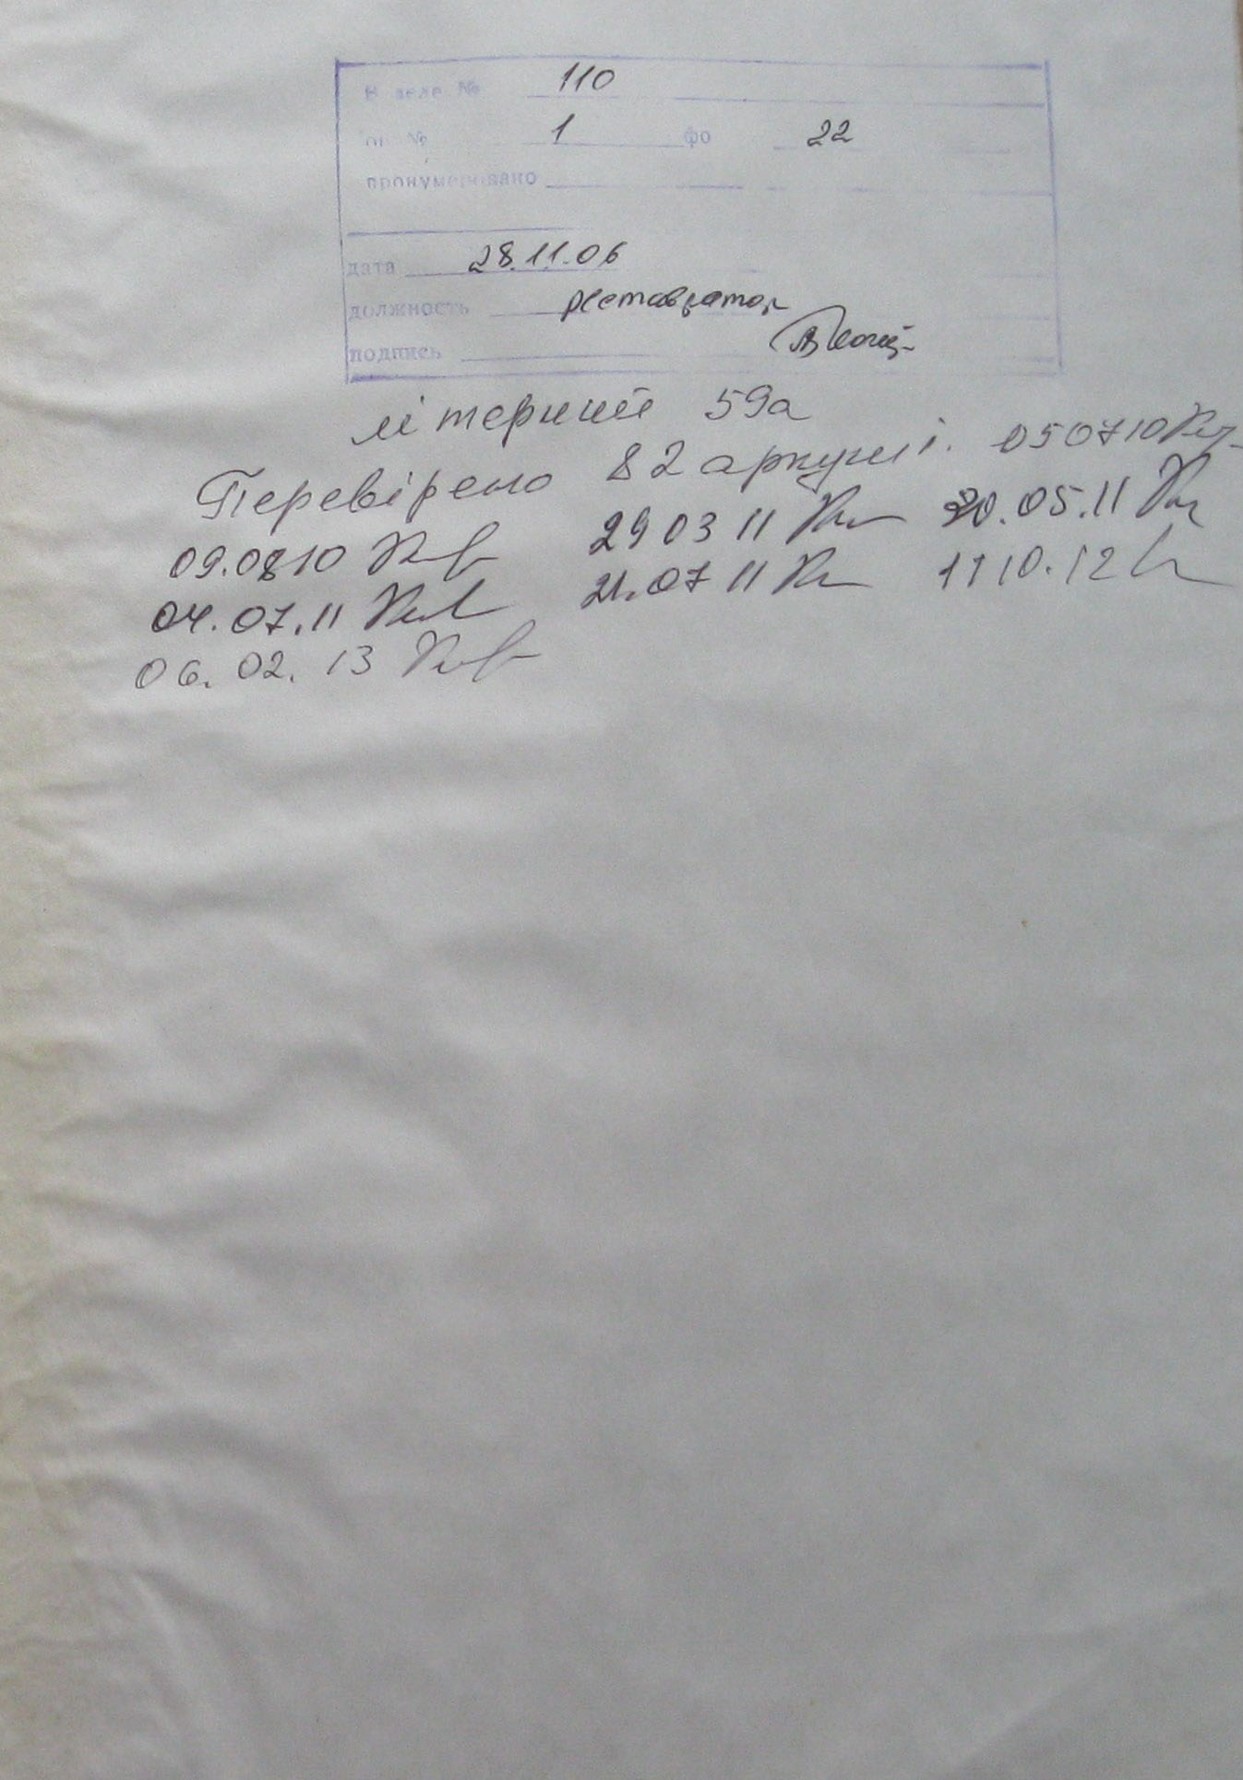 В деле № 110
оп. № 1 фо 22
пронумеровано
дата 28.11.06
должность реставратор
подпись
літерний 59а
Перевірено 82 аркуші. 050710
09.0810 29 03 11 20.05.11
04.07.11 21.07 11 11 10.12
06.02.13